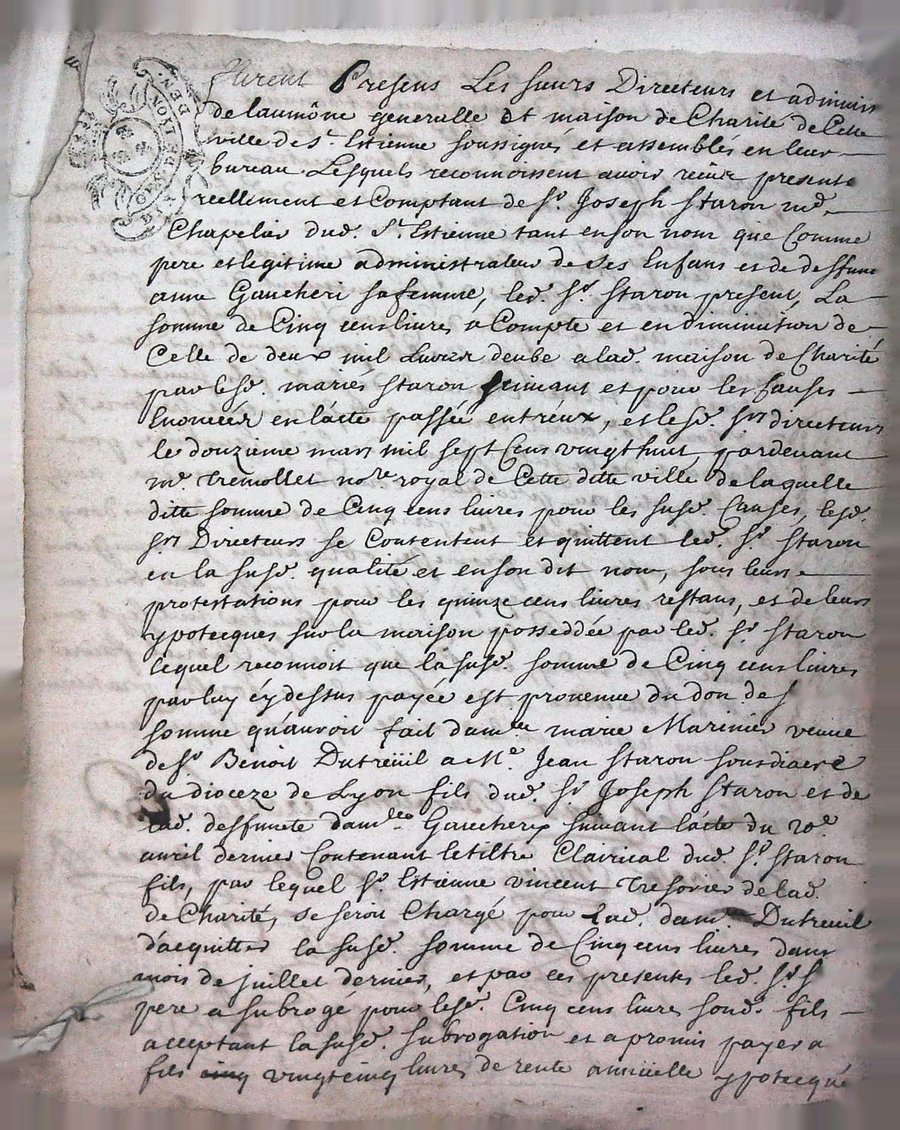 furent Presens Les sieurs Directeurs et adminis
de laumône generalle et maison de Charité de Cette
ville de St. Estienne soussignés et assemblés en leur
bureau. Lesquels reconnoissent avoir reçeu presente
reellement et Comptant de Sr. Joseph Staron md.
Chapelier dud. St. Estienne tant en son nom que Comme
pere et legitime administrateur de ses Enfans et de deffune
anne Gaucheri sa femme, led. Sr. Staron present, La
somme de Cinq cens livres a Compte et en diminution de
Celle de deux mil Livres deube a lad. maison de Charité
par lesd. mariés Staron suivant et pour les Causes
Enoncées en lacte passée entréux, et lesd. Srs directeurs
le douzieme mars mil sept Cens vingt huit, pardevant
me. Tremollet nore. royal de Cette ditte ville, de laquelle
ditte somme de Cinq cens livres pour les susd. Causes, lesd.
Srs Directeurs se Contentent et quittent led. Sr. Staron
en la susd. qualité et en son dit nom, sous leurs
protestations pour les quinze cens livres restans, et de leurs
ypotecques sur la maison posseddée par led. Sr Staron
Lequel reconnoit que la susd. somme de Cinq cens livres
par luy cy dessus payée est provenue du don de
somme qu'auroit fait damlle marie Marinier veuve
de Sr. Benoit Dutreüil a Me. Jean Staron sousdiacre
du dioceze de Lyon fils dud. Sr. Joseph Staron et de
lad. deffuncte damlle Gaucherÿ suivant lacte du 20e.
avril dernier Contenant le tiltre Clairical dud. Sr. Staron
fils, par lequel Sr. Estienne vincent Tresorier de lad.
de Charité, se seroit Chargé pour Lad. dam. Dutreuil
d'acquitter la susd. somme de Cinq cens livres dans
mois de juillet dernier, et par ces presentes led. Sr. S
pere a subrogé pour lesd. Cinq cens livres sond. fils
acceptant la susd. subrogation et a promis payer a
fils cinq vingt cinq livres de rente annuelle ypotecqué